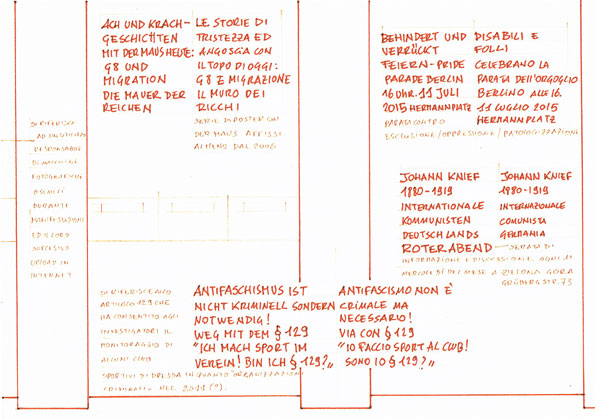 ACH UND KRACH-
GESCHICHTEN
MIT DER MAUS HEUTE:
G8 UND
MIGRATION
DIE MAUER DER
REICHEN
LE STORIE DI
TRISTEZZA ED
ANGOSCIA CON
IL TOPO DI OGGI:
G8 E MIGRAZIONE
IL MURO DEI
RICCHI
SERIE DI POSTER CON
DER MAUS AFFISSI
ALMENO DAL 2006
BEHINDERT UND
VERRÜCKT
FEIERN-PRIDE
PARADE BERLIN
16 UHR. 11 JULI
2015 HERMANNPLATZ
DISABILI E
FOLLI
CELEBRANO LA
PARATA DELL'ORGOGLIO
BERLINO ALLE 16.
11 LUGLIO 2015
HERMANNPLATZ
PARATA CONTRO
ESCLUSIONE/OPPRESSIONE/PATOLOGIZZAZIONE
SI RIFERISCE
AD UN UTILIZZO
DURANTE
MANIFESTAZIONI
ED IL LORO
SUCCESSIVO
UPLOAD IN
INTERNET
JOHANN KNIEF
1880-1919
INTERNATIONALE
KOMMUNISTEN
DEUTSCHLANDS
ROTER ABEND
JOHANN KNIEF
1980-1919
INTERNAZIONALE
COMUNISTA
GERMANIA
— SERATA DI
INFORMAZIONE E DISCUSSIONE OGNI 1°
MERCOLEDÌ DEL MESE A ZIELONA GORA
GRÜNBERG STR. 73
SI RIFERISCE ALLO
ARTICOLO 129 CHE
HA CONSENTITO AGLI
INVESTIGATORI IL
MONITORAGGIO DI
ALCUNI CLUB
SPORTIVI DI DRESDA IN QUANTO ORGANIZZAZIONI
CRIMINALI NEL 2011 (?).
ANTIFASCHISMUS IST
NICHT KRIMINELL SONDERN
NOTWENDIG!
WEG MIT DEM § 129
"ICH MACH SPORT IM
VEREIN! BIN ICH § 129?„
ANTIFASCISMO NON È
CRIMALE MA
NECESSARIO!
VIA CON § 129
"IO FACCIO SPORT AL CLUB!
SONO IO § 129?„